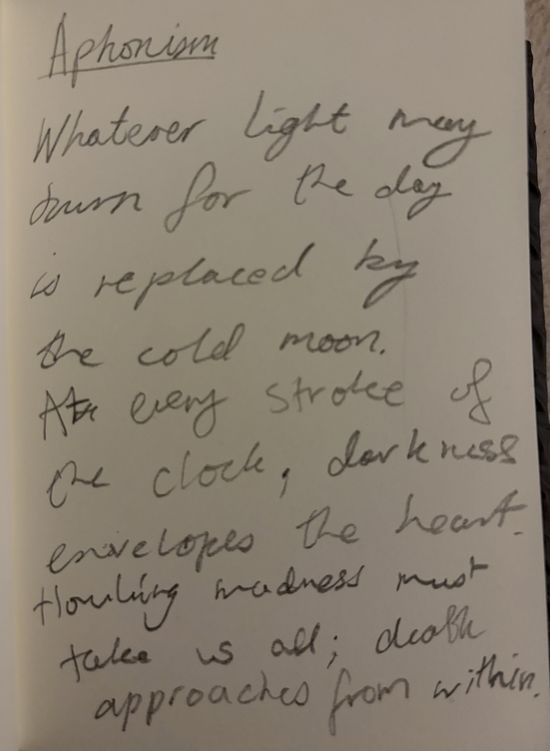 Aphonism
Whatever light may
burn for the day
is replaced by
the cold moon.
At every stroke of
the clock, darkness
envelopes the heart.
Howling madness must
take us all; death
approaches from within.